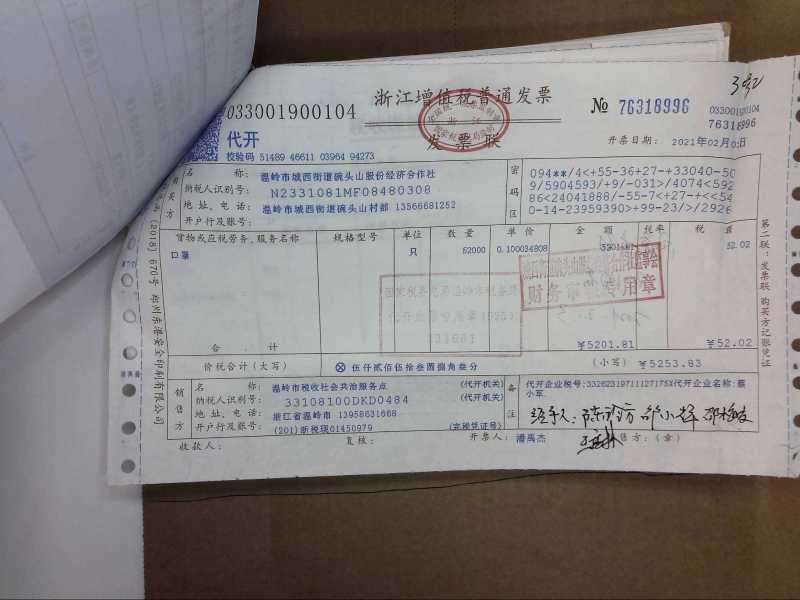 033001900104
浙江增值税普通发票
发票联
№ 76318996
033001900104
76318996
代开
校验码 51489 46611 03964 94273
开票日期:
购买方
名称: 温岭市城西街道碗头山股份经济合作社
纳税人识别号: N2331081MF08480308
地址、电话: 温岭市城西街道碗头山村部 13566681252
开户行及账号:
密码区
094**/4<+55-36+27-+33040-50
9/5904593/+9/-031>/4074<592
86<24041888/-55-7<+27-+<<54
0-14-23959390>+99-23/>/2926
货物或应税劳务、服务名称 规格型号 单位 数量 单价 金额 税率 税额
口罩 只 52000 0.100034808 5201.81 52.02
财务 专用章
合计 ¥5201.81 ¥52.02
价税合计(大写) ⊗ 伍仟贰佰伍拾叁圆捌角叁分 (小写) ¥5253.83
销售方
名称: 温岭市税收社会共治服务点 (代开机关)
纳税人识别号: 33108100DKD0484 (代开机关)
地址、电话: 浙江省温岭市 13958631668
开户行及账号: (201)浙税现01450979 (完税凭证号)
备注
代开企业税号:33262319711127175X代开企业名称:蔡
小军.
经手人:
收款人: 复核: 开票人: 潘禹杰 销售方:(章)
第二联:发票联 购买方记账凭证
(2018) 670号 郑州东港安全印刷有限公司